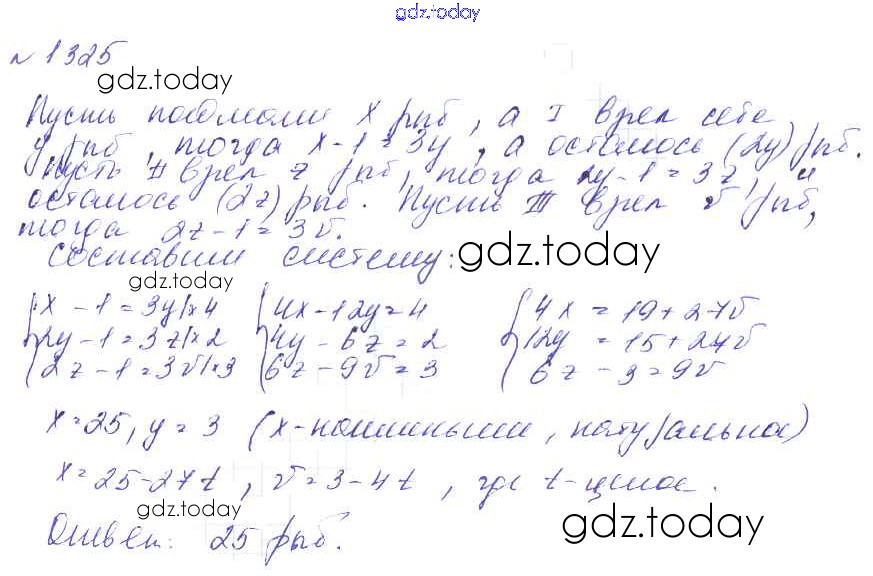 gdz.today
№ 1325
gdz.today
Пусть поймали x рыб, а I взял себе
y рыб, тогда x - 1 = 3y, а осталось (2y) рыб.
Пусть II взял z рыб, тогда 2y - 1 = 3z, и
осталось (2z) рыб. Пусть III взял v рыб,
тогда 2z - 1 = 3v.
Составим систему:
gdz.today
gdz.today
{x - 1 = 3y |×4 {4x - 12y = 4 {4x = 19 + 27v
{2y - 1 = 3z |×2 {4y - 6z = 2 {12y = 15 + 27v
{2z - 1 = 3v |×3 {6z - 9v = 3 {6z - 3 = 9v
x = 25, y = 3 (x - наименьшее, натуральное)
x = 25 - 27t, v = 3 - 4t, где t - целое.
gdz.today
gdz.today
Ответ: 25 рыб.